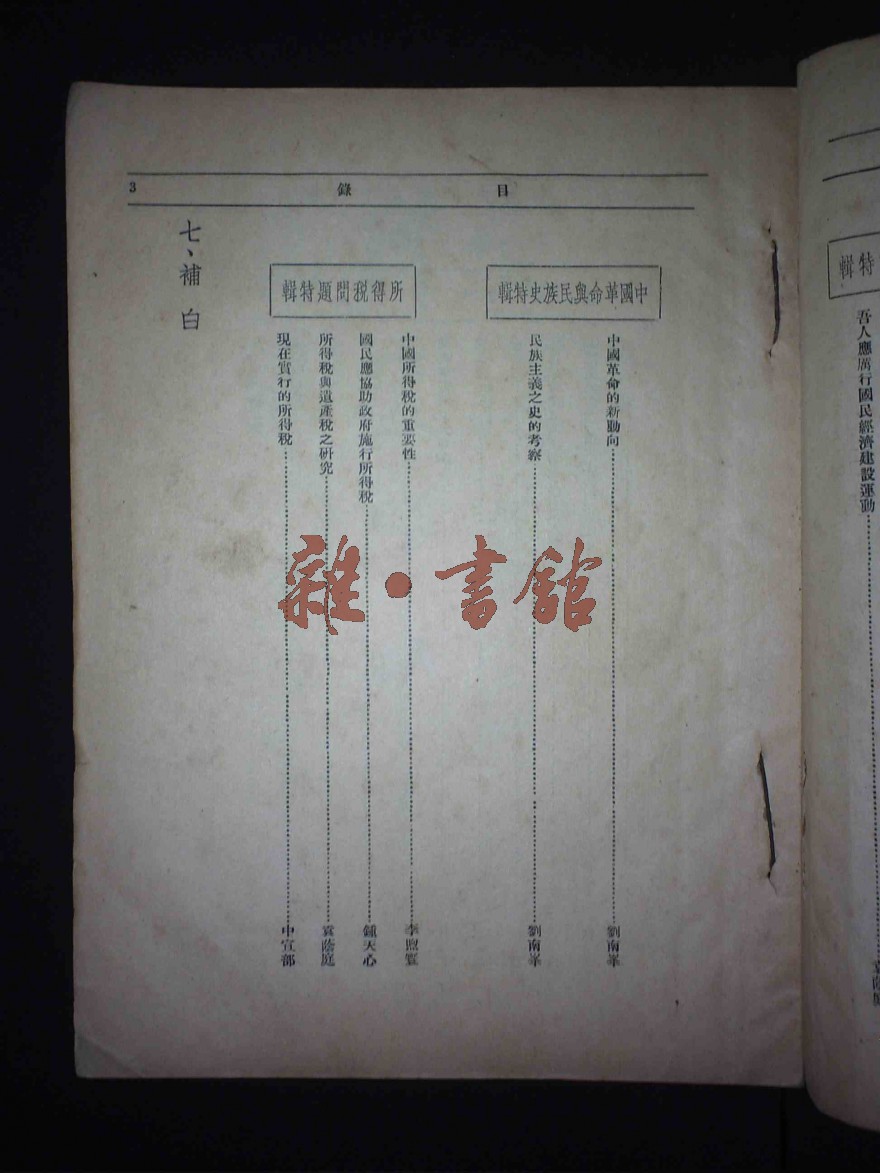 特輯
吾人應厲行國民經濟建設運動
袁蔭庭
目錄
3
中國革命與民族史特輯
中國革命的新動向
劉南峯
民族主義之史的考察
劉南峯
所得稅問題特輯
中國所得稅的重要性
李
國民應協助政府施行所得稅
鍾天心
所得稅與遺產稅之研究
袁蔭庭
現在實行的所得稅
中宣部
七、補白
雜·書館